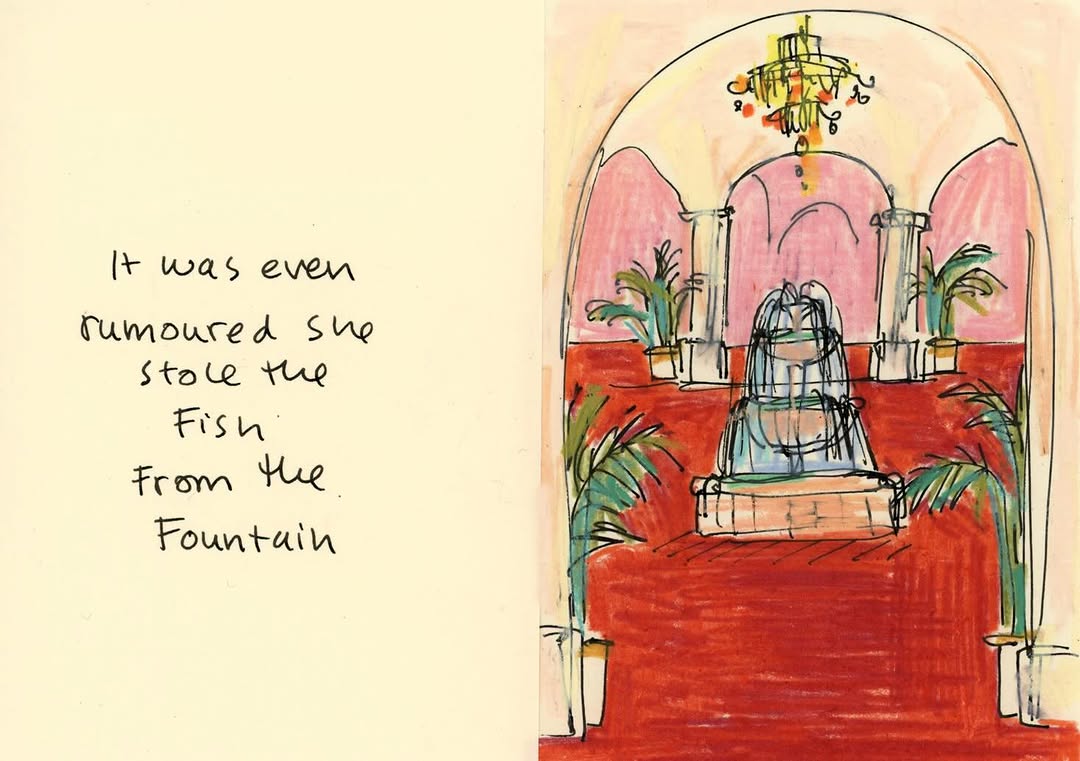 It was even
rumoured she
stole the
Fish
From the
Fountain